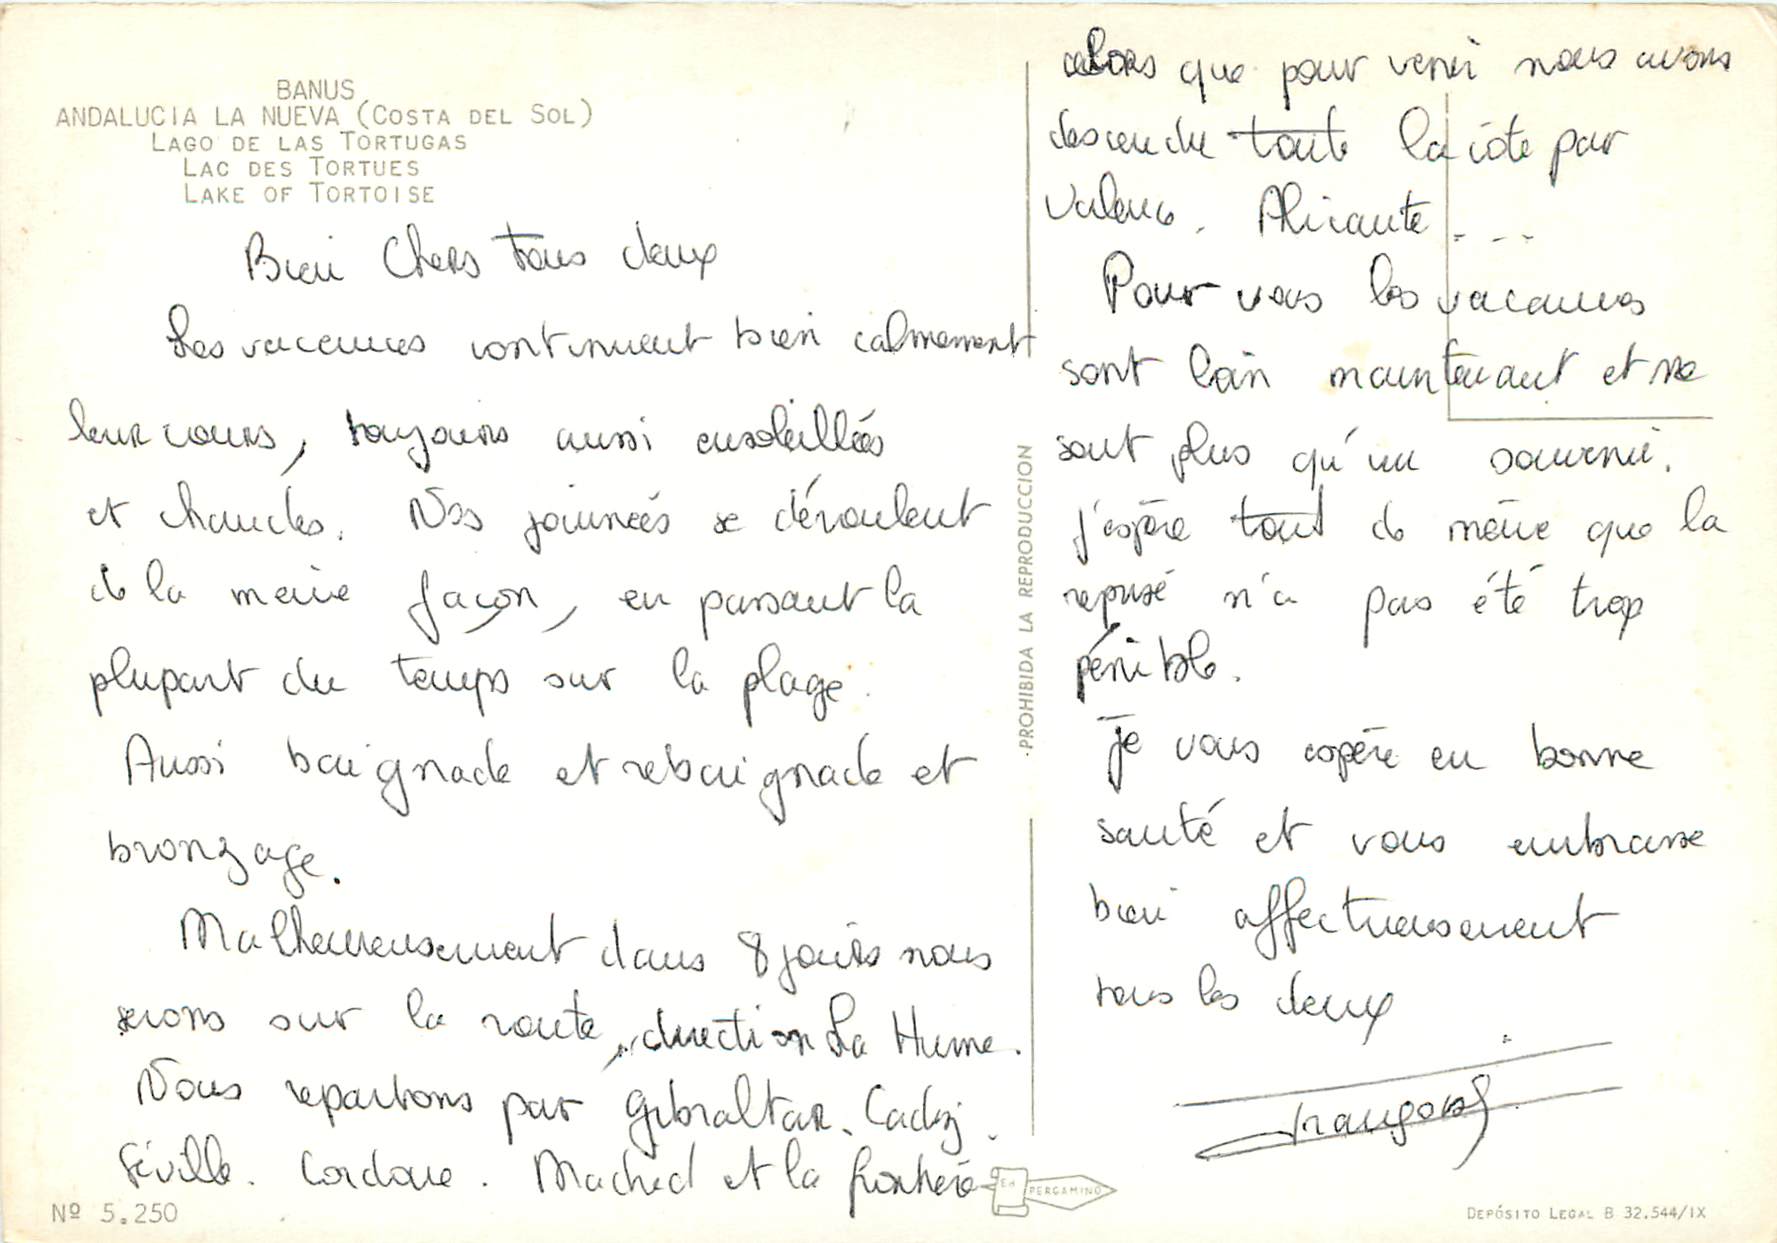 BANUS
ANDALUCIA LA NUEVA (COSTA DEL SOL)
LAGO DE LAS TORTUGAS
LAC DES TORTUES
LAKE OF TORTOISE
Bien Chers tous deux
Les vacances continuent bien calmement
leur cours, toujours aussi ensoleillées
et chaudes. Nos journées se déroulent
de la même façon, en passant la
plupart du temps sur la plage.
Aussi baignade et rebaignade et
bronzage.
Malheureusement dans 8 jours nous
serons sur la route, direction La Hume.
Nous repartons par Gibraltar. Cadiz.
Séville. Cordoue. Madrid et la frontière
alors que pour venir nous avons
descendu toute la côte par
Valence. Alicante ...
Pour vous les vacances
sont loin maintenant et ne
sont plus qu'un souvenir.
J'espère tout de même que la
reprise n'a pas été trop
pénible.
Je vous espère en bonne
santé et vous embrasse
bien affectueusement
tous les deux
Françoise
PROHIBIDA LA REPRODUCCION
EH PERGAMINO
Nº 5.250
DEPÓSITO LEGAL B 32.544/IX